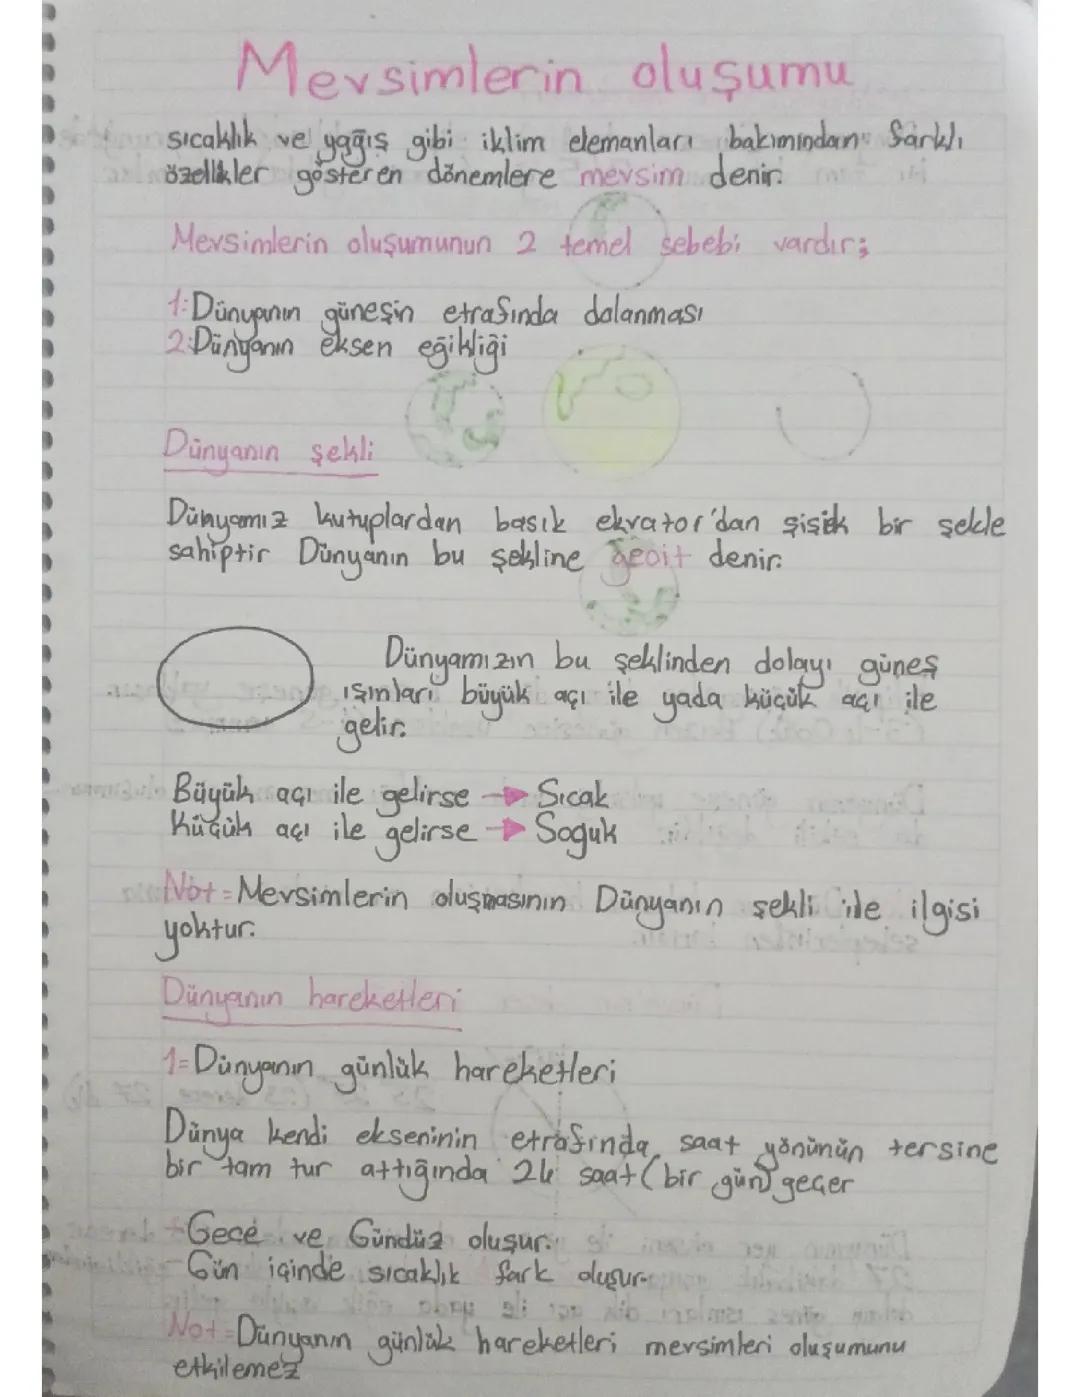 Mevsimlerin oluşumu
sıcaklık ve yağış gibi iklim elemanları bakımından farklı
özellikler gösteren dönemlere mevsim denir.
Mevsimlerin oluşumunun 2 temel sebebi vardır;
1:Dünyanın güneşin etrafında dolanması
2:Dünyanın eksen eğikliği
Dünyanın şekli
Dünyamız kutuplardan basık ekvator'dan şişik bir şekle
sahiptir Dünyanın bu şekline geoit denir.
Dünyamızın bu şeklinden dolayı güneş
ışınları büyük açı ile yada küçük açı ile
gelir.
Büyük açı ile gelirse → Sıcak
Küçük açı ile gelirse → Soğuk
Not = Mevsimlerin oluşmasının Dünyanın şekli ile ilgisi
yoktur.
Dünyanın hareketleri
1=Dünyanın günlük hareketleri
Dünya kendi ekseninin etrafında saat yönünün tersine
bir tam tur attığında 24 saat (bir gün) geçer
-Gece ve Gündüz oluşur.
-Gün içinde sıcaklık fark oluşur.
Not = Dünyanın günlük hareketleri mevsimleri oluşumunu
etkilemez